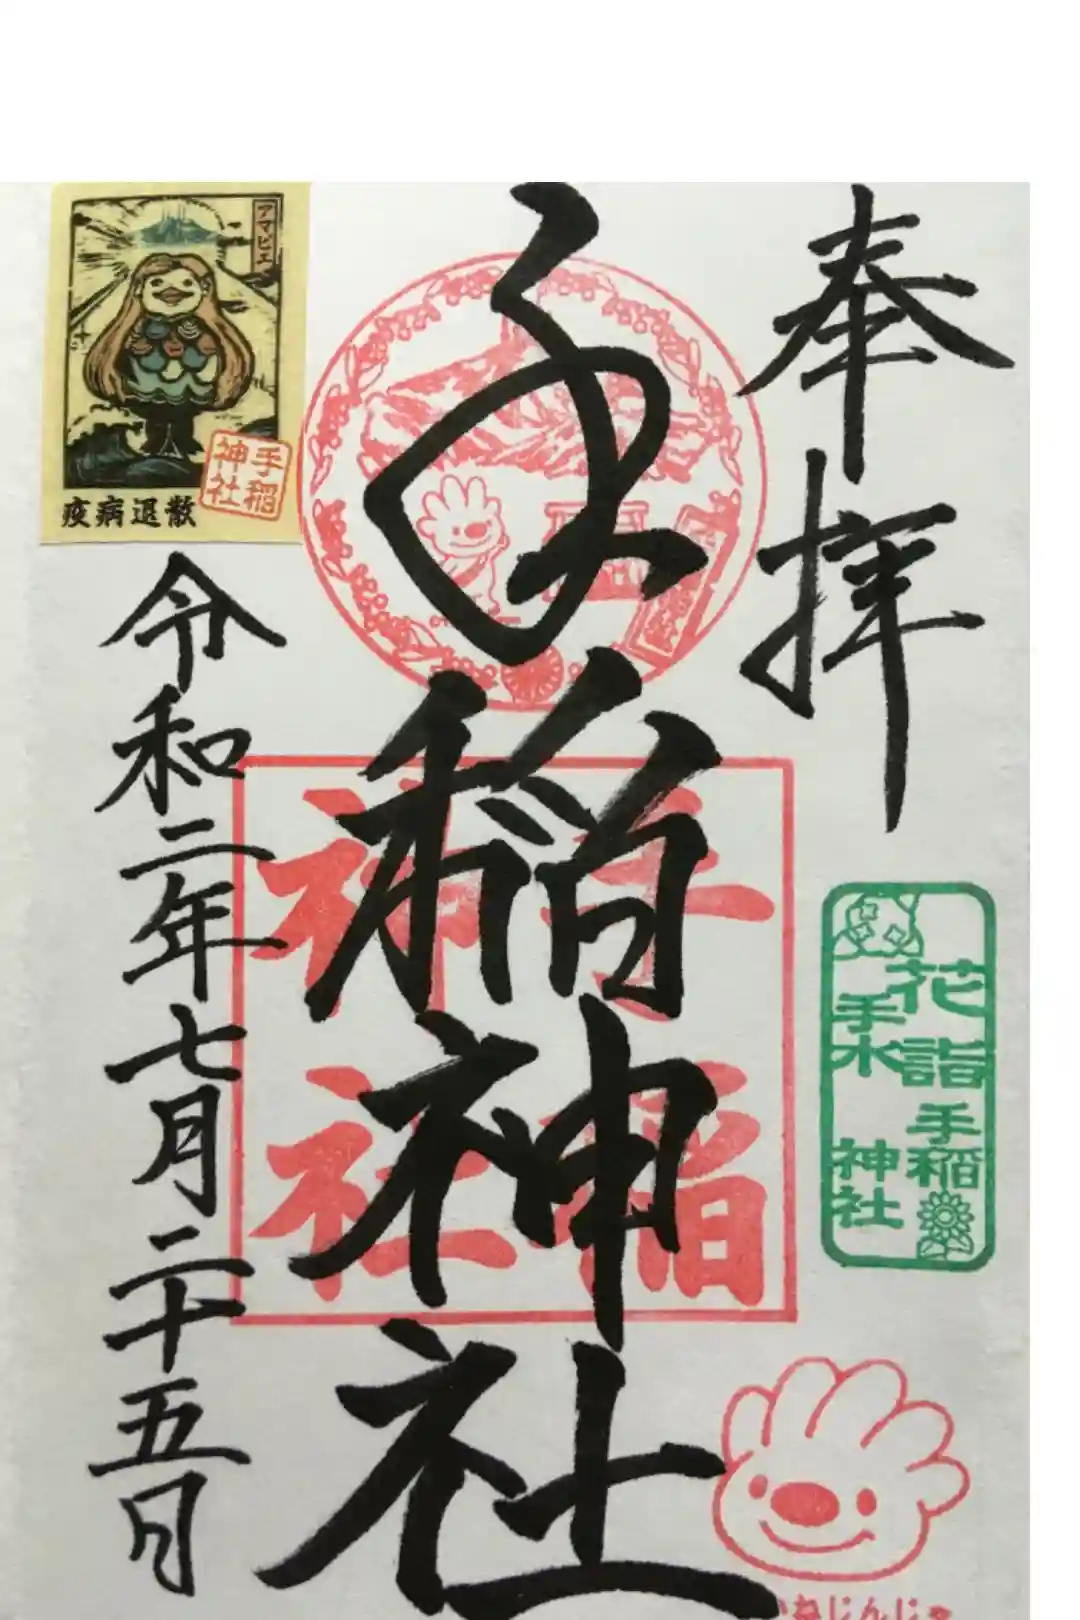 奉拝
花詣
手稲
手水
神社
手稲神社
手稲
神社
アマビエ
疫病退散
手稲
神社
令和二年七月二十五日
ねじんじゃ